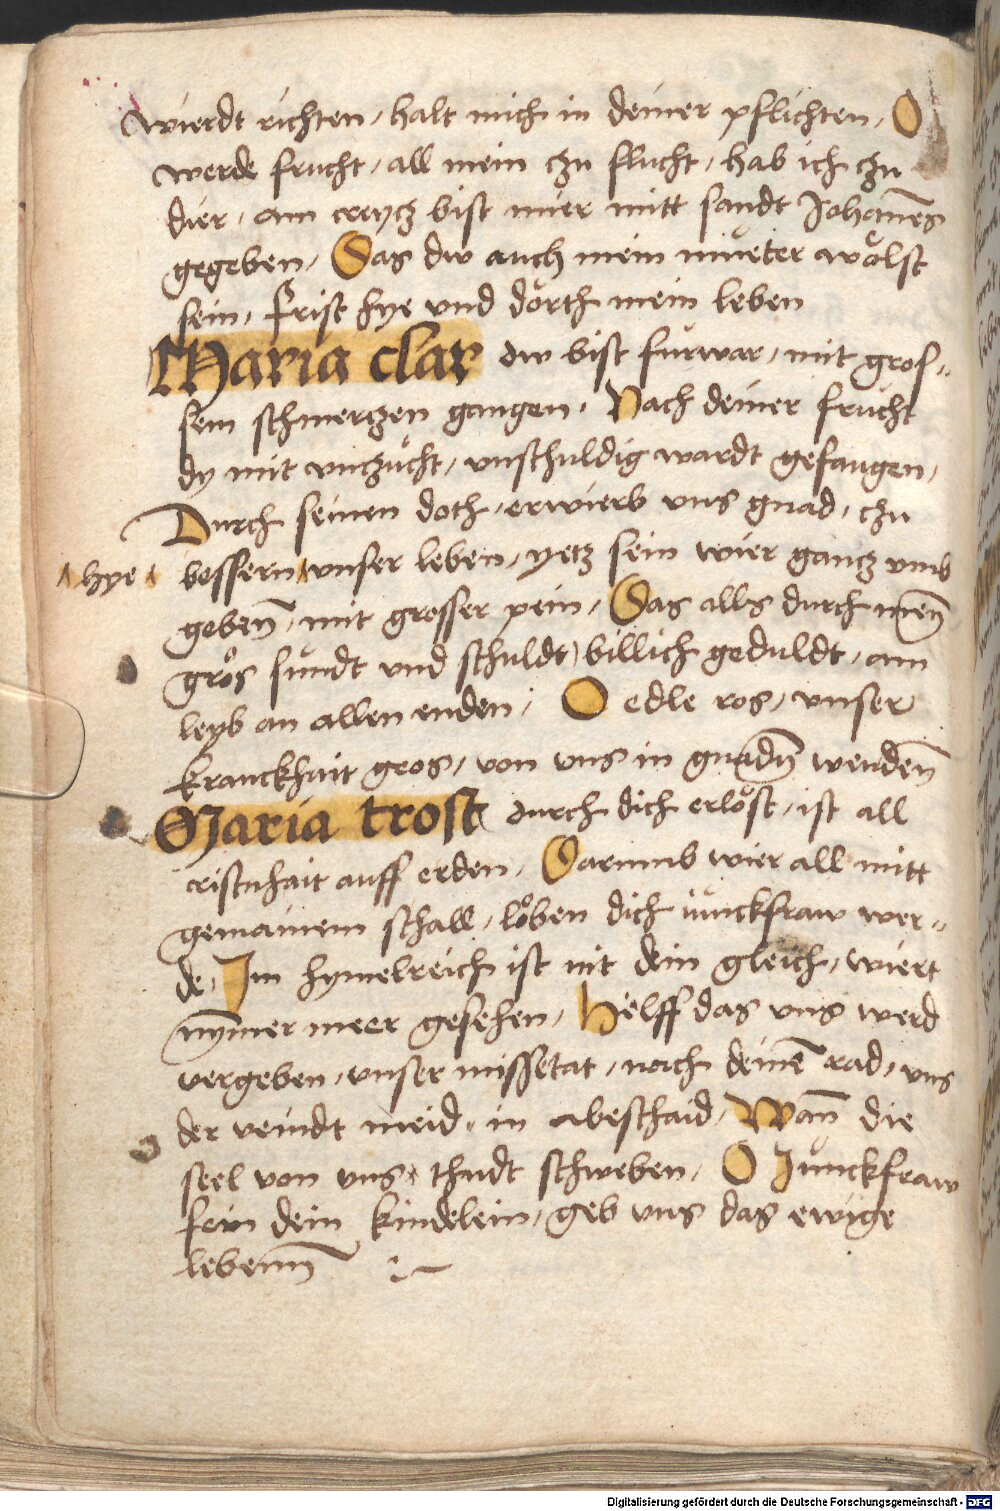 wierdt richten, halt mich in deiner pflichten, O
werde frucht, all mein zu flucht, hab ich zu
dier, am creytz bist mier mitt sandt Johanēs
gegeben, Das dw auch mein mueter wölst
sein, frist hye vnd dorth mein leben
Maria clar dw bist furwar, mit gros⸗
sem schmertzen gangen, Nach deiner frucht
dy mit vntzucht, vnschuldig wardt gefangen,
Durch seinen doth, erwierb vns gnad, zu
hye bessern vnser leben, yetz sein wier gantz vmb
gebenn̄, mit grosser pein, Das alls durch mein̄
gros sundt vnd schuldt billich geduldt, am
leyb an allen enden, O edle ros, vnser
kranckhait gros, von vns in gnadn̄ wendenn̄
Maria trost durch dich erlöst, ist all
cristnhait auff erden, Darumb wier all mitt
gemainem schall, loben dich iunckfraw wer⸗
de, Im hymelreich ist nit dein gleich, wiert
nȳmer meer gesehen, Helff das vns werd
vergeben, vnser missetat, nach deinē rad, vns
der veindt meid, in abeschaid, Wan̄ die
seel von vns, thudt schweben, O Junckfraw
fein dein kindelein, geb vns das ewige
lebenn̄
Digitalisierung gefördert durch die Deutsche Forschungsgemeinschaft - DFG